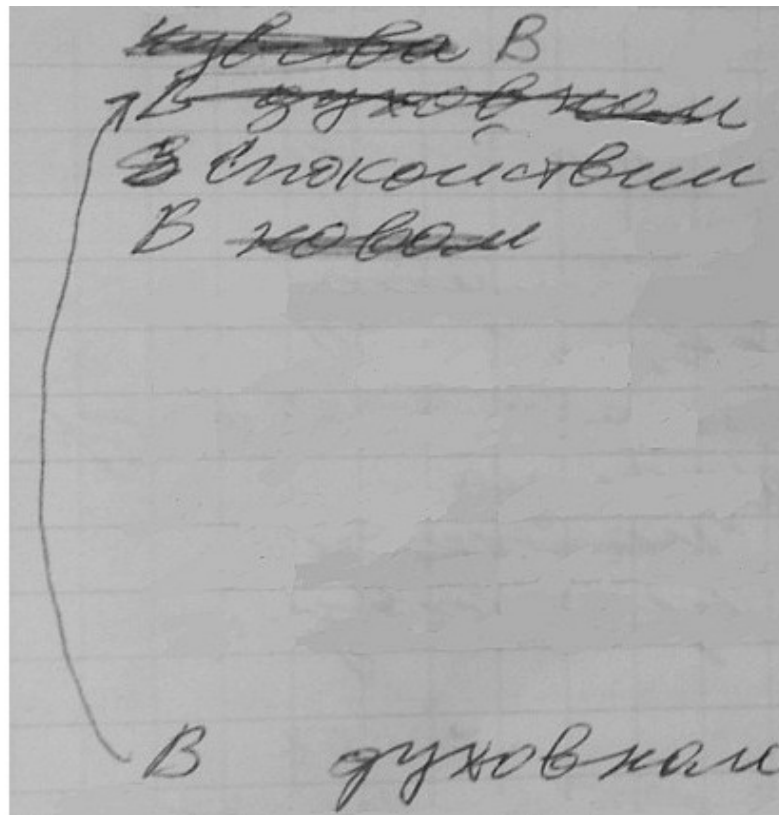 чувства В
В духовном
в спокойствии
В новом
В духовном